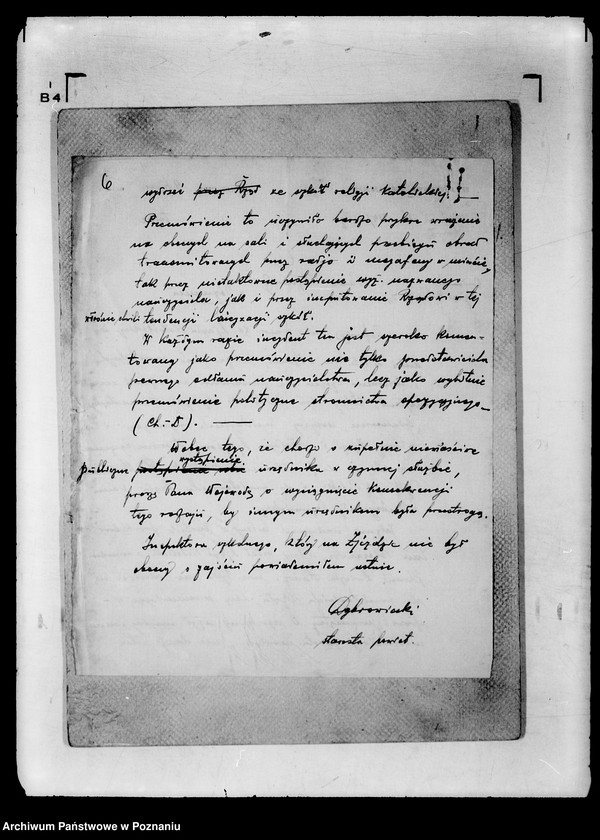 B4
6
wyrzec przez Rząd ze szkół religji katolickiej!
Przemówienie to uczyniło bardzo przykre wrażenie
na obecnych na sali i słuchających przebiegu obrad
transmitowanych przez radjo i megafony w mieście,
tak przez nietaktowne postąpienie wyż. nazwanego
nauczyciela, jak i przez imputowanie Rządowi w tej
właśnie chwili tendencji laicyzacji szkół.
W każdym razie incydent ten jest szeroko komen-
towany jako przemówienie nie tylko przedstawiciela
pewnego odłamu nauczycielstwa, lecz jako wybitnie
przemówienie polityczne stronnictwa opozycyjnego
(Ch.-D).
Wobec tego, że chodzi o zupełnie niewłaściwe
publiczne wystąpienie urzędnika w czynnej służbie,
proszę Pana Wojewodę o wyciągnięcie konsekwencji
tego rodzaju, by innym urzędnikom była przestrogą.
Inspektora szkolnego, który na Zjeździe nie był
obecny o zajściu powiadomiłem ustnie.
starosta powiat.
Archiwum Państwowe w Poznaniu